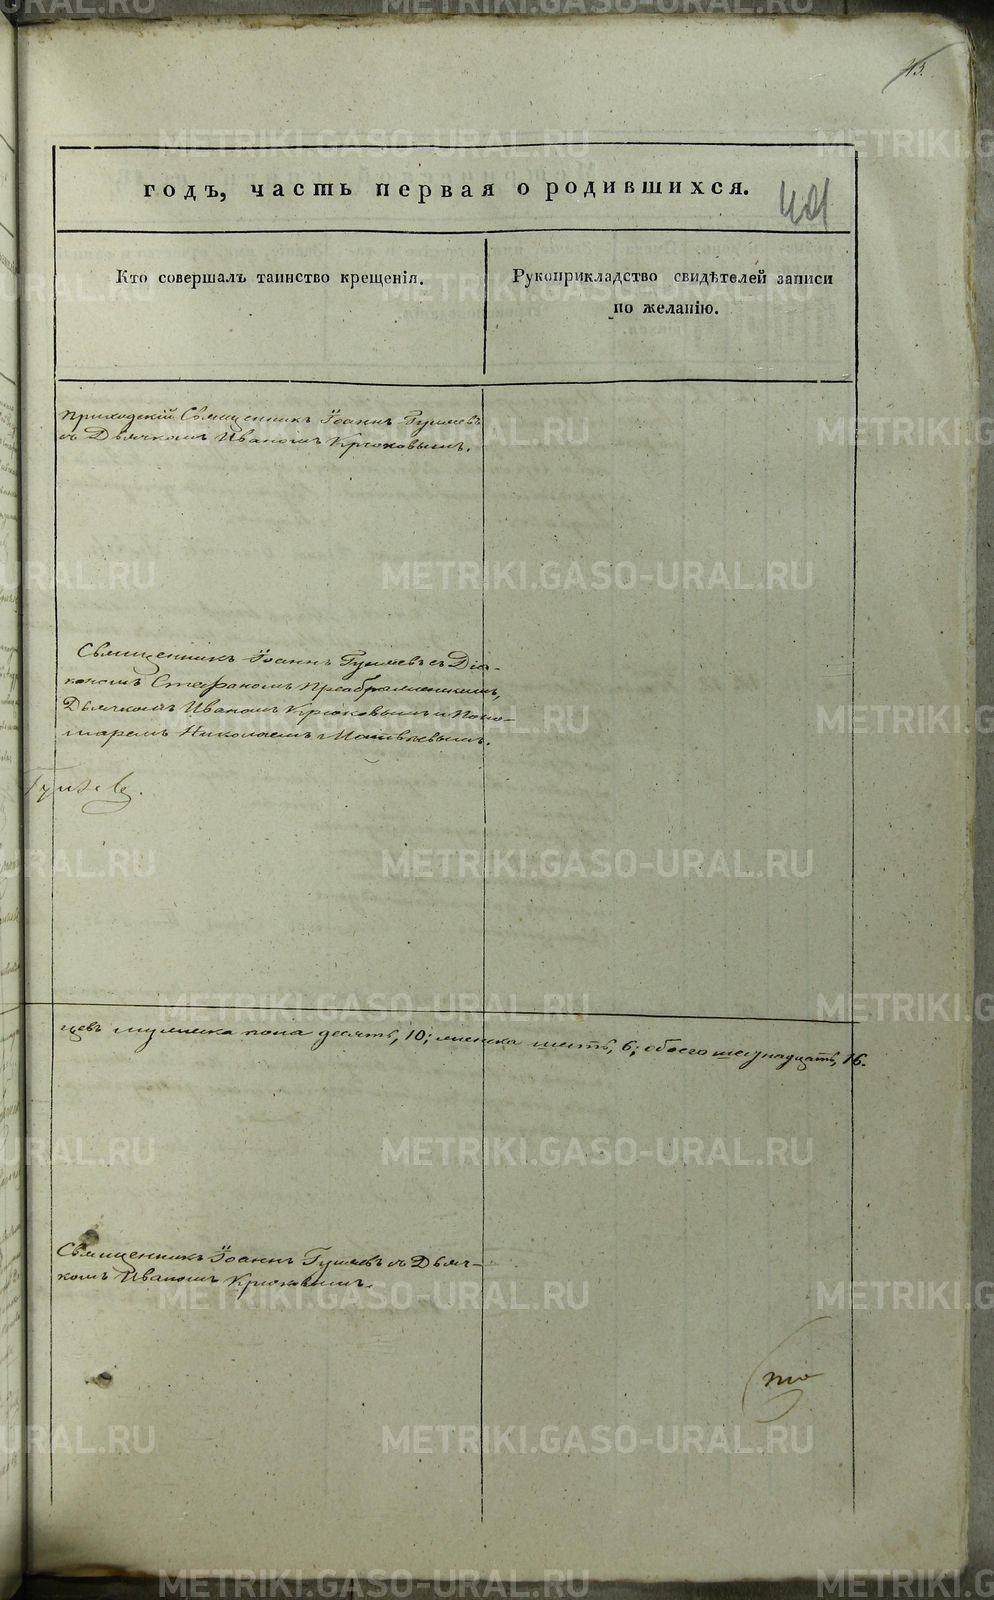 43.
годъ, часть первая о родившихся.
401
Кто совершалъ таинство крещенія.
Рукоприкладство свидѣтелей записи
по желанію.
Приходскій Священникъ Іоаннъ Гуляевъ
съ Дьячкомъ Иваномъ Крюковымъ.
Священникъ Іоаннъ Гуляевъ съ Діа-
кономъ Стефаномъ Преображенскимъ,
Дьячкомъ Иваномъ Крюковымъ и Поно-
маремъ Николаемъ Матвѣевымъ.
Гуляевъ.
цевъ мужеска пола десять, 10; женска шесть, 6; обоего шеснадцать, 16.
Священникъ Іоаннъ Гуляевъ съ Дьяч-
комъ Иваномъ Крюковымъ.
METRIKI.GASO-URAL.RU